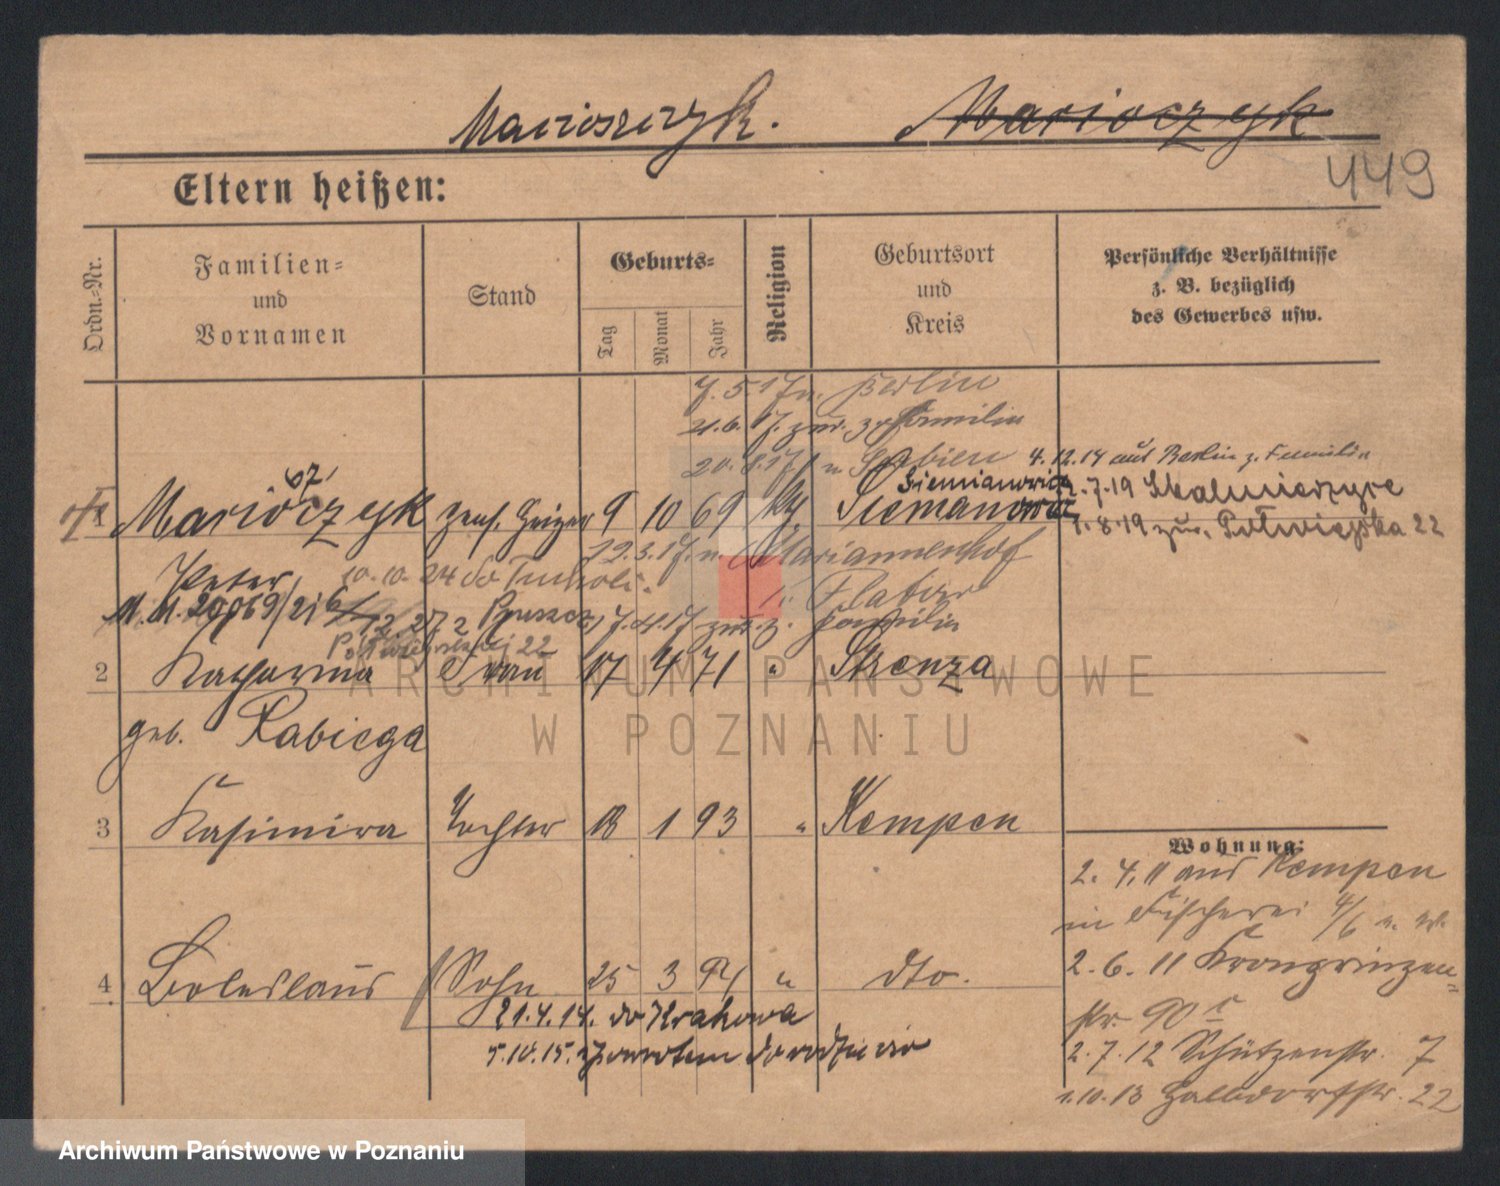 Marioszczyk. Marioczyk
449
Eltern heißen:
Ordn.-Nr.
Familien-
und
Vornamen
Stand
Geburts-
Tag
Monat
Jahr
Religion
Geburtsort
und
Kreis
Persönliche Verhältnisse
z. B. bezüglich
des Gewerbes usw.
7. 5. 17 n. Berlin
21. 6. 17. zur. z. Familie
20. 8. 17 n
4. 12. 17 aus Berlin z. Familie
Siemianowice
7.19 Skalmierzyce
1 Marioczyk Heizer 9 10 69 Siemanowitz
1. 8. 19 zur. Półwiejska 22
22. 3. 17. n. Mariannenhof
Peter, 10. 10. 24 do Tucholi.
i. Flatow
M. M. 20069/21
17. 4. 17 zur. z. Familie
Półwiejskiej 22
2 Katharina Frau 17 4 71 " Strenza
geb. Rabiega
3 Kasimira Tochter 18 1 93 " Kempen
Wohnung:
2. 4. 11 aus Kempen
in Fischerei 4/6 n. w.
4 Boleslaus Sohn 25 3 94 " dto.
2. 6. 11 Kronprinzen-
str. 90
21. 4. 14. do Krakowa
2. 7. 12 Schützenstr. 7
5. 10. 15. z powrotem do rodziców
1. 10. 13 Halbdorfstr. 22
ARCHIWUM PAŃSTWOWE
W POZNANIU
Archiwum Państwowe w Poznaniu